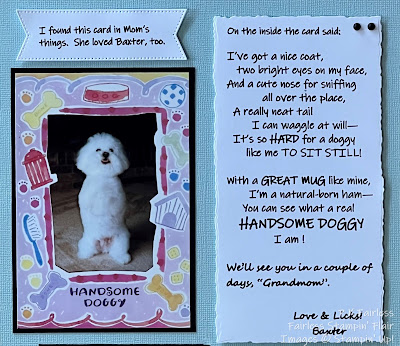 I found this card in Mom's
things. She loved Baxter, too.
HANDSOME
DOGGY
On the inside the card said:
I've got a nice coat,
two bright eyes on my face,
And a cute nose for sniffing
all over the place,
A really neat tail
I can waggle at will—
It's so HARD for a doggy
like me TO SIT STILL!
With a GREAT MUG like mine,
I'm a natural-born ham—
You can see what a real
HANDSOME DOGGY
I am!
We'll see you in a couple of
days, "Grandmom".
Love & Licks!
Baxter
Fairless
Fairless Stampin' Flair
Images © Stampin' Up!